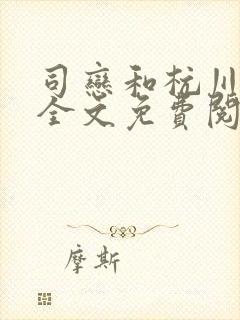 司戀和杭川
全文免費閱
摩斯